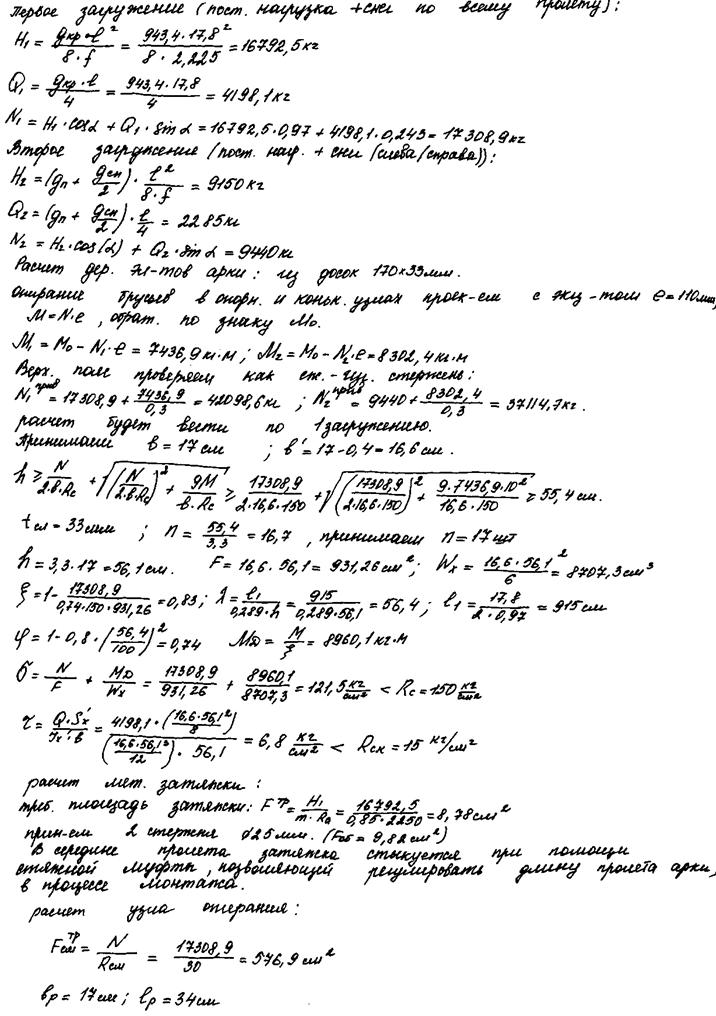 Первое загружение (пост. нагрузка + снег по всему пролету):
H₁ = gкр·l²/8·f = 943,4·17,8²/8·2,225 = 16792,5 кг
Q₁ = gкр·l/4 = 943,4·17,8/4 = 4198,1 кг
N₁ = H₁·cosα + Q₁·sinα = 16792,5·0,97 + 4198,1·0,243 = 17308,9 кг
Второе загружение (пост. наг. + снег (слева/справа)):
H₂ = (gп + gсн/2)·l²/8·f = 9150 кг
Q₂ = (gп + gсн/2)·l/4 = 2285 кг
N₂ = H₂·cos(α) + Q₂·sinα = 9440 кг
Расчет дер. эл-тов арки: из досок 170×33мм.
Опирание брусьев в опорн. и коньк. узлах проек-ем с экц-том e = 110мм,
M = N·e, обрат. по знаку M₀.
M₁ = M₀ - N₁·e = 7436,9 кг·м; M₂ = M₀ - N₂·e = 8302,4 кг·м
Верх. пояс проверяем как сж.-изг. стержень:
N₁прив = 17308,9 + 7436,9/0,3 = 42098,6 кг; N₂прив = 9440 + 8302,4/0,3 = 37114,7 кг.
расчет будет вести по 1 загружению.
Принимаем b = 17 см; b' = 17 - 0,4 = 16,6 см.
h ≥ N/2·b·Rс + √((N/2·b·Rс)² + 9M/b·Rс) ≥ 17308,9/2·16,6·150 + √((17308,9/2·16,6·150)² + 9·7436,9·10²/16,6·150) ≥ 55,4 см.
tсл = 33мм; n = 55,4/3,3 = 16,7, принимаем n = 17 шт
h = 3,3·17 = 56,1 см. F = 16,6·56,1 = 931,26 см²; Wx = 16,6·56,1²/6 = 8707,3 см³
ξ = 1 - 17308,9/0,74·150·931,26 = 0,83; λ = l₁/0,289·h = 915/0,289·56,1 = 56,4; l₁ = 17,8/2·0,97 = 915 см
φ = 1 - 0,8·(56,4/100)² = 0,74 Mд = M/ξ = 8960,1 кг·м
σ = N/F + Mд/Wx = 17308,9/931,26 + 8960,1/8707,3 = 121,5 кг/см² < Rс = 150 кг/см²
τ = Q·Sx'/Jx'·b = 4198,1·(16,6·56,1²/8)/(16,6·56,1³/12)·56,1 = 6,8 кг/см² < Rск = 15 кг/см²
расчет мет. затяжки:
треб. площадь затяжки: Fтр = H₁/m·Rа = 16792,5/0,85·2250 = 8,78 см²
прин-ем 2 стержня ∅25мм. (Fаб = 9,82 см²)
В середине пролета затяжка стыкуется при помощи
стяжной муфты, позволяющей регулировать длину пролета арки,
в процессе монтажа.
расчет узла опирания:
Fсмтр = N/Rсм = 17308,9/30 = 576,9 см²
bр = 17 см; lр = 34 см